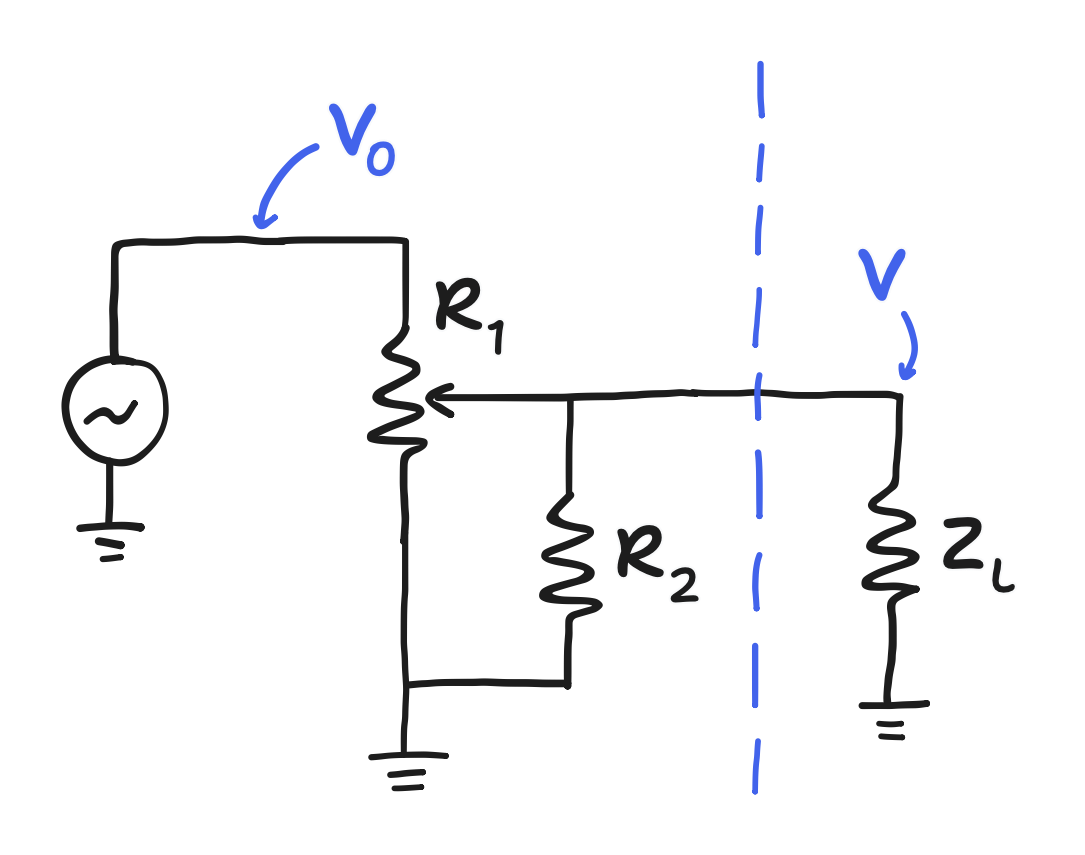 V₀
R₁
V
R₂
Z_L